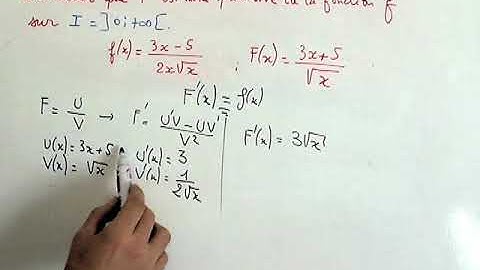 que F est une primitive de la fonction f
sur I = ]0; +∞[.
f(x) = (3x - 5)/(2x√x) ; F(x) = (3x + 5)/√x
F'(x) = f(x)
F = U/V → F' = (U'V - UV')/V²
U(x) = 3x + 5 U'(x) = 3
V(x) = √x V'(x) = 1/(2√x)
F'(x) = 3√x